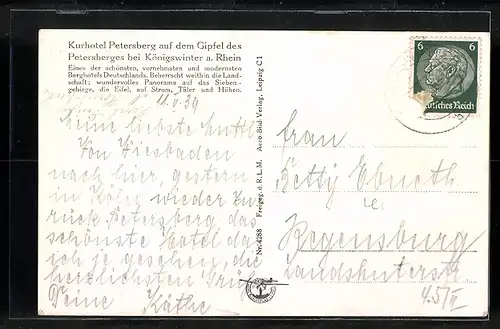 Kurhotel Petersberg auf dem Gipfel des
Petersberges bei Königswinter a. Rhein
Eines der schönsten, vornehmsten und modernsten
Berghotels Deutschlands. Beherrscht weithin die Land-
schaft; wundervolles Panorama auf das Sieben-
gebirge, die Eifel, auf Strom, Täler und Höhen.
11.V.39
Meine liebste Mutti!
Von Wiesbaden
nach hier, gestern
in Köln wieder zu-
rück. Petersberg das
schönste Hotel da
ich je gesehen, die
herzlichsten Grüße
Deine Käthe
Nr. 4288 Freigeg. d. R.L.M. Aero-Bild-Verlag, Leipzig C1
6 6
Deutsches Reich
Frau
Betty Ebneth
Regensburg
Landshuterstr
45/II